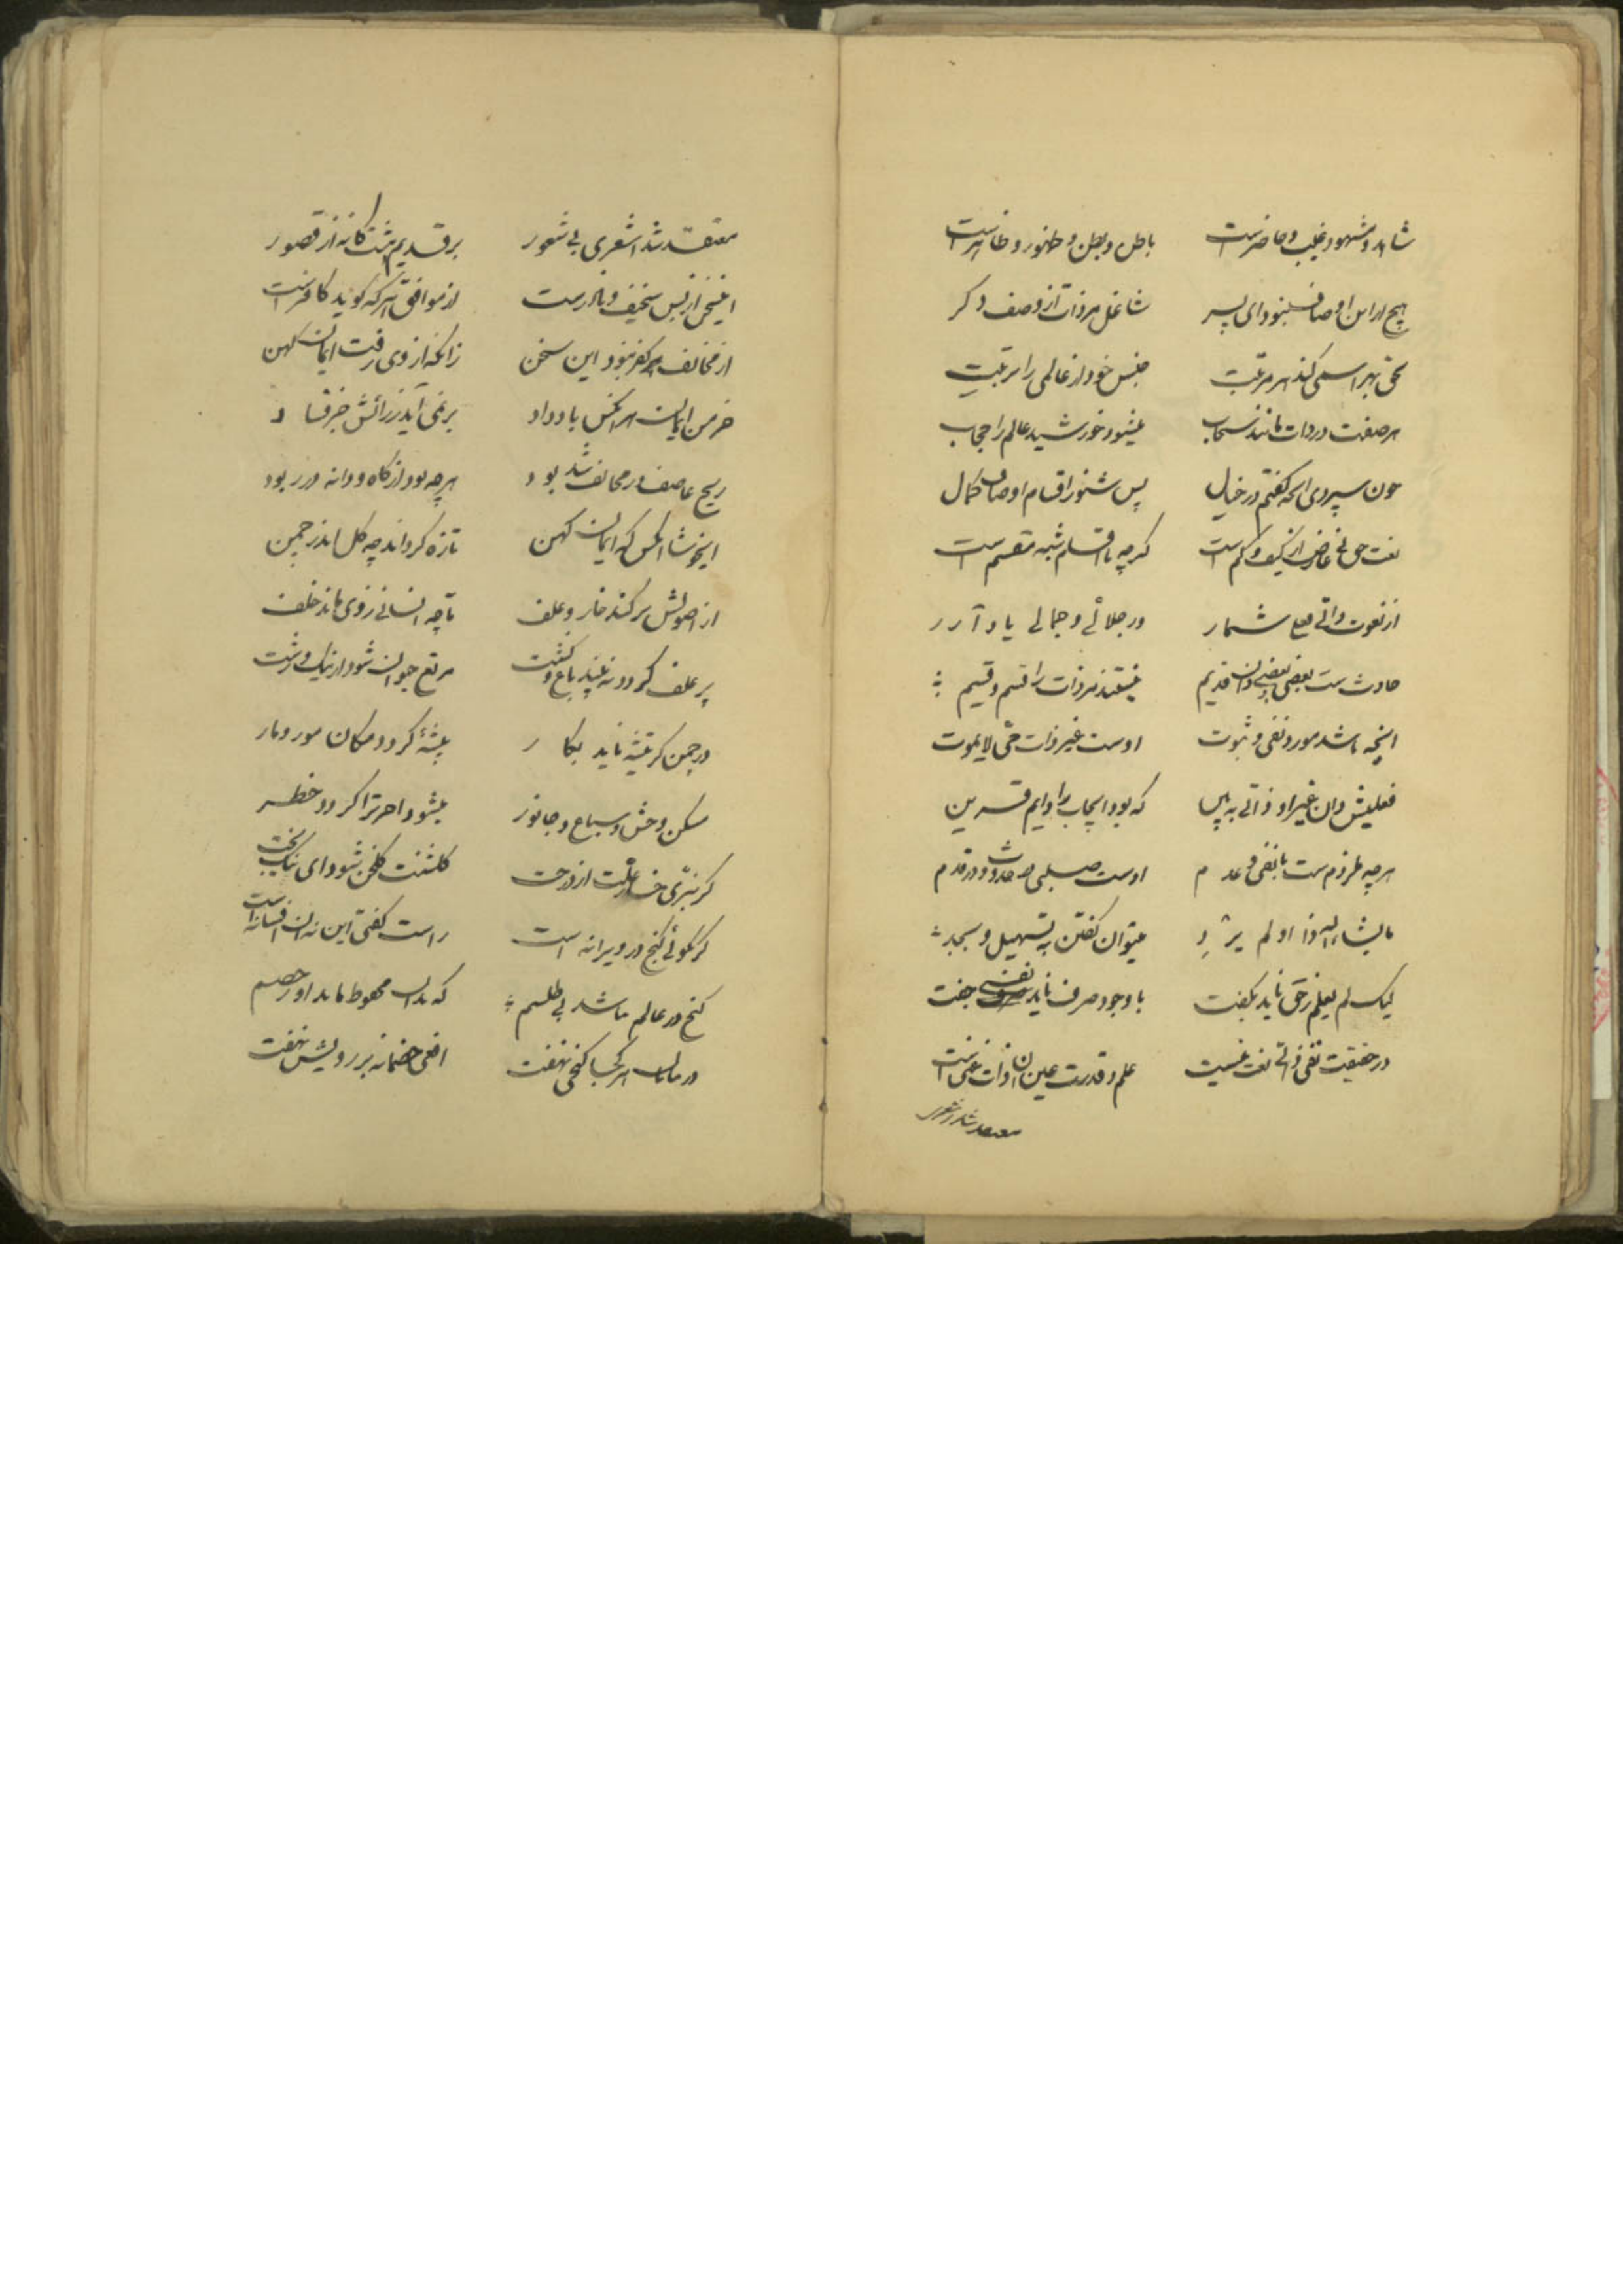 شاهد و مشهود و غیب و حاضرست باطن و بطن و ظهور و ظاهرست
هیچ از این اوصاف نبود ای پسر شاغل مر ذات از وصف دگر
هر صفت در ذات مانند سحاب میشود خورشید عالم را حجاب
چون سپردی آنچه گفتم در خیال پس شنو اقسام اوصاف کمال
نعت حق نی عارض از کیف و کم است گرچه با اقسام شبه منقسم است
از نعوت ذاتی شمار در جلالی و جمالی یاد آر
حادث ست بعضی و بعضی دان قدیم نیستند مر ذات را قسم و قسیم
آنچه باشد مورد نفی و ثبوت اوست غیر ذات حی لایموت
فعلیش دان غیر او ذاتی به بین که بود ایجاب را دایم قرین
هرچه ملزوم ست با نفی و عدم اوست در حدوث و در قدم
ما یشاء الله و اذا او لم یرد میتوان گفتن به تسهیل و بجد
لیک لم یعلم ز حق ناید بگفت با وجود صرف ناید نفی جفت
در حقیقت نفی ذاتی نعت نیست علم و قدرت عین آن ذات غنی است
معتقد شد اشعری
معتقد شد اشعری بی شعور بر قدیم هشتگانه از قصور
اینسخن از بس سخیف و نادرست از موافق هر که گوید کافرست
از مخالف کفر نبود این سخن زانکه از وی رفت ایمان کهن
خرمن ایمان هر آنکس باد داد بر نمی آید ز رائش جز فساد
ریح عاصف در مخالف شد بود هرچه بود از کاه و دانه در ربود
ایخوشا آنکس که ایمان کهن تازه گرداند چه گل اندر چمن
از اصولش بر کند خار و علف تا چه انسانی ز وی ماند خلف
پر علف گردد نه بیند باغ و کشت مرتع حیوان شود از نیک و زشت
در چمن گر تیشه ناید بکار بیشه گردد مکان مور و مار
مسکن وحش و سباع و جانور میشود آخر ترا گردد خطر
گر نبری خار و علت از درخت گلشنت گلخن شود ای نیک بخت
گر نگوئی گنج در ویرانه است راست گفتی این نه آن افسانه است
گنج در عالم نباشد بی طلسم که بدان محفوظ ماند او ز خصم
در جهان هر کجا گنجی نهفت افعی خصمانه بر رویش نخفت